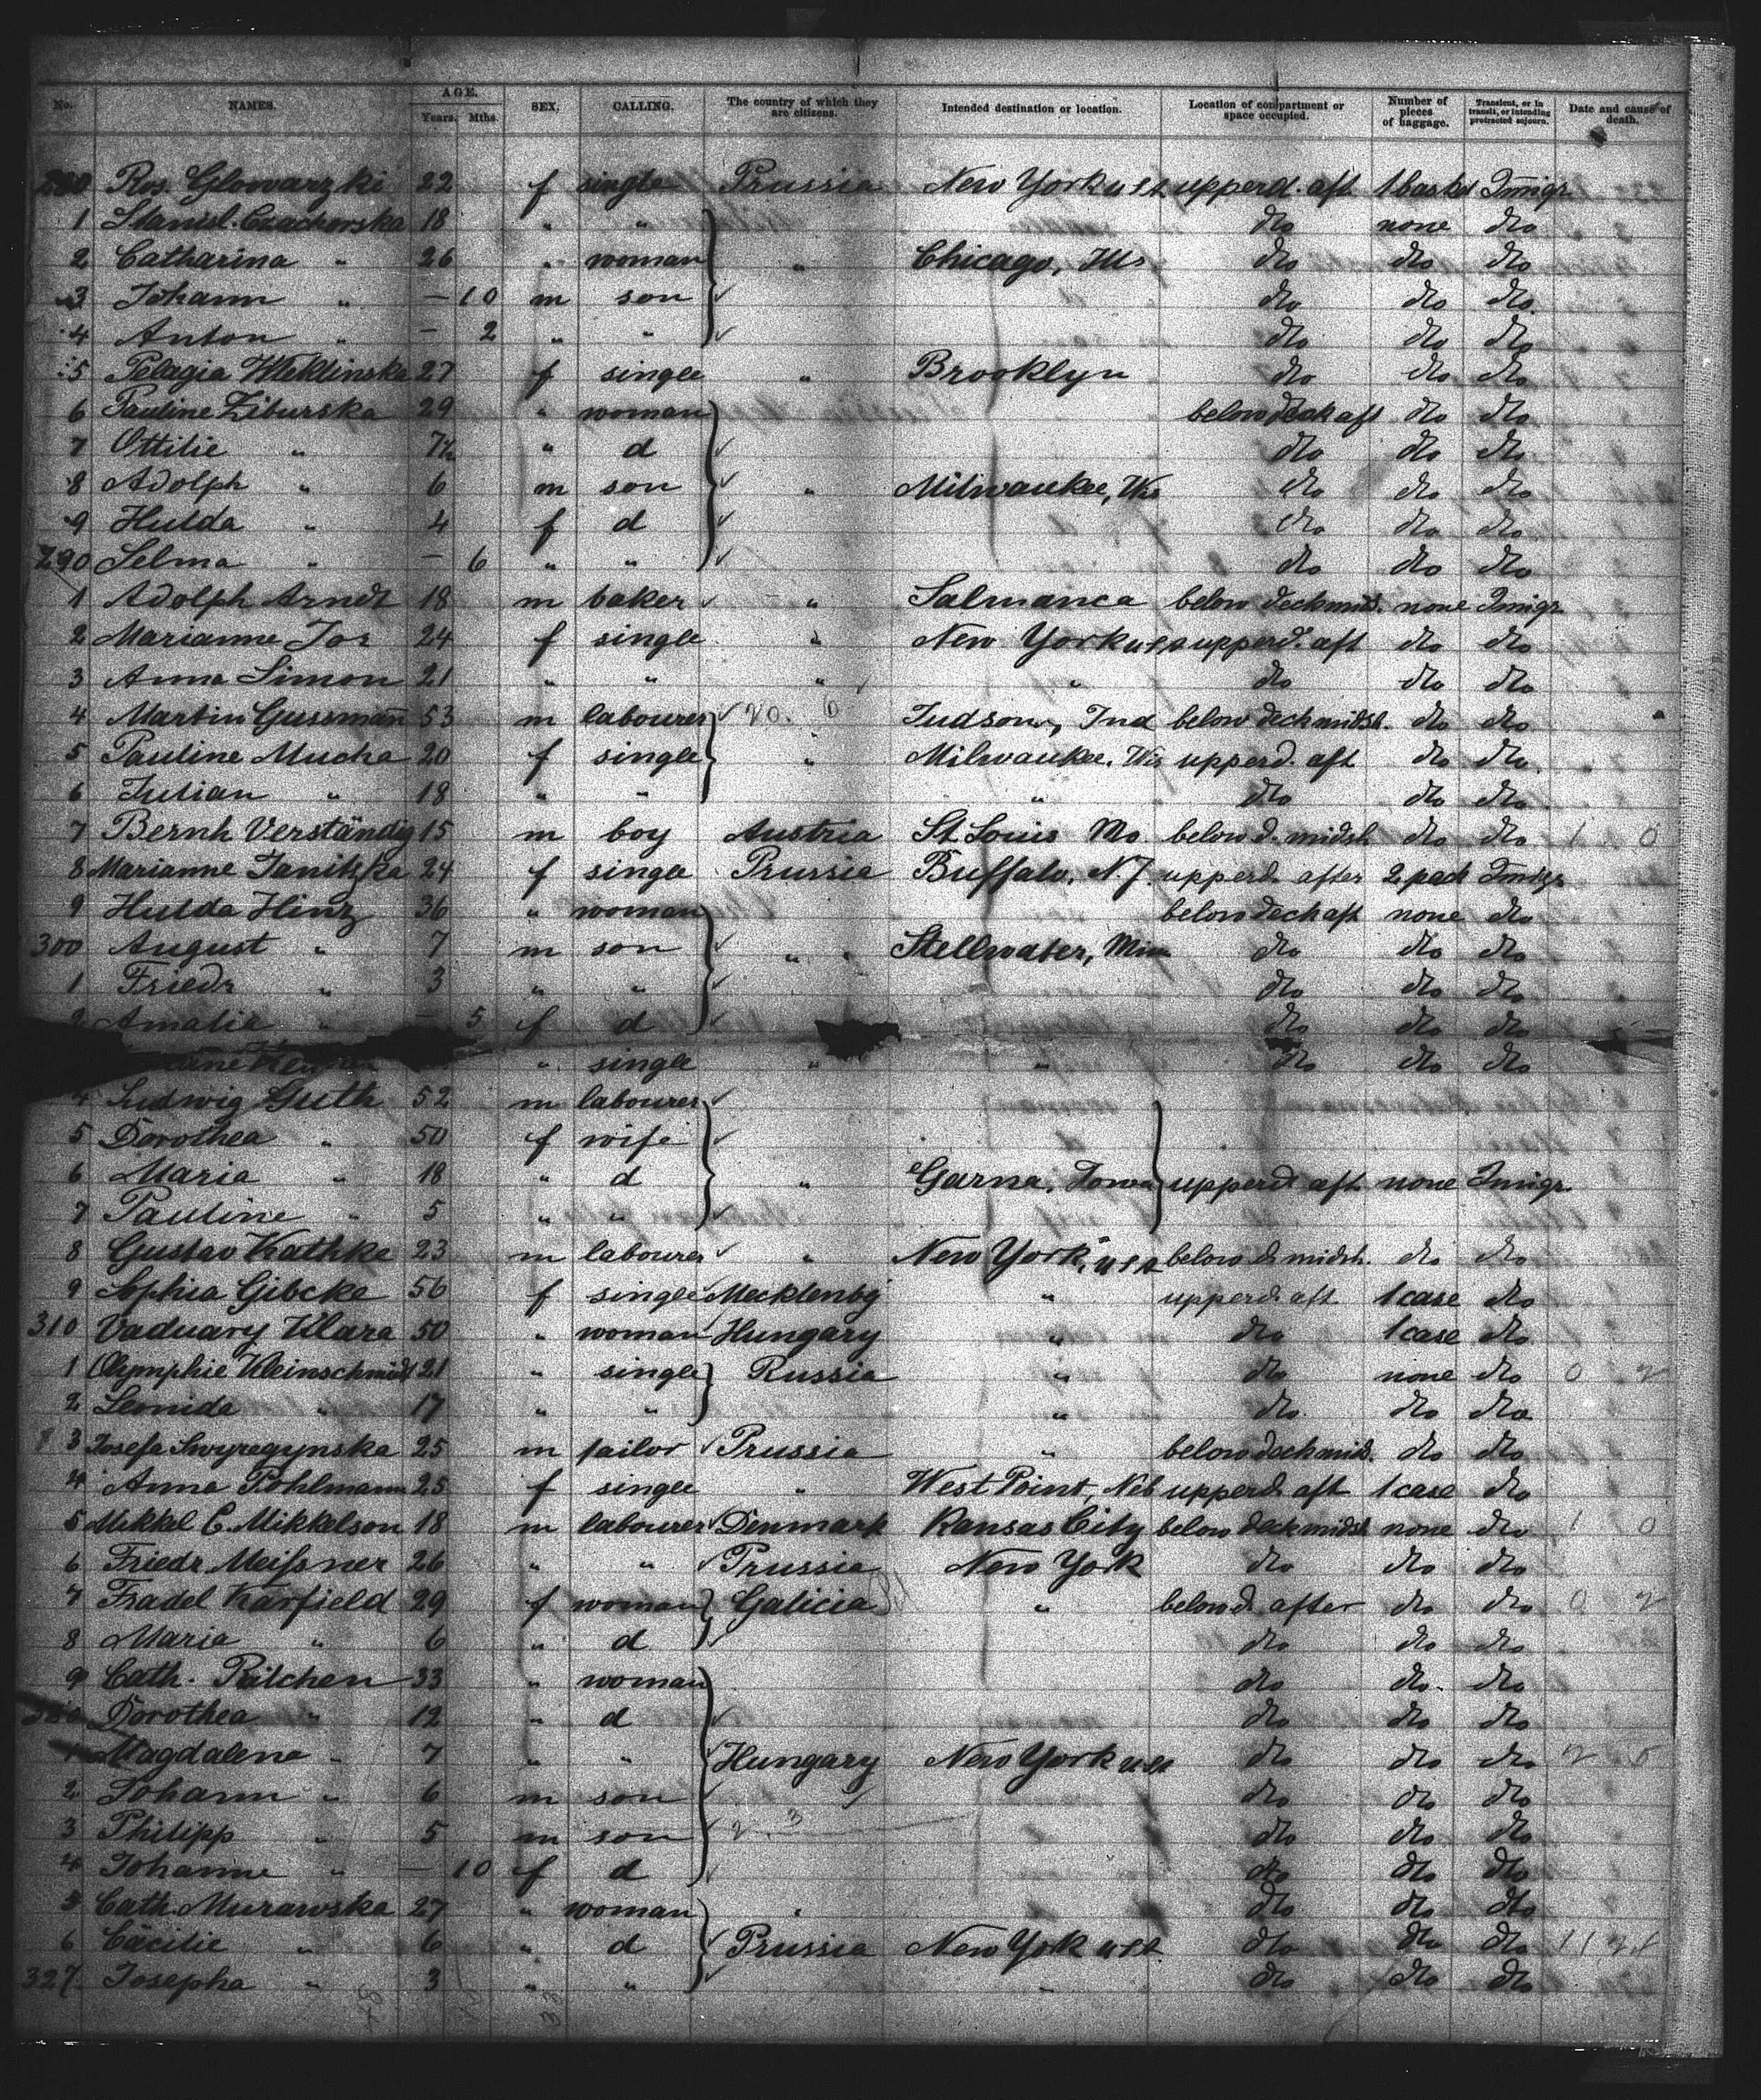 No. NAMES. AGE. Years. Mths. SEX. CALLING. The country of which they are citizens. Intended destination or location. Location of compartment or space occupied. Number of pieces of baggage. Transient, or in transit, or intending protracted sojourn. Date and cause of death.
280 Ros. Glowarzki 22 f single Prussia New York usa upperd. aft 1 baskd Imigr
1 Stanisl. Czachorska 18 " " dto none dto
2 Catharina " 26 " woman " Chicago, Ills dto dto dto
3 Johann " — 10 m son dto dto dto
4 Anton " — 2 " " dto dto dto
5 Pelagia 27 f single " Brooklyn dto dto dto
6 Pauline Ziburska 29 " woman below deck aft dto dto
7 Ottilie " 7½ " d dto dto dto
8 Adolph " 6 m son " Milwaukee, Wis dto dto dto
9 Hulda " 4 f d dto dto dto
290 Selma " — 6 " " dto dto dto
1 Adolph Arndt 18 m baker " Salmanca below deck mid. none Imigr
2 Marianne Jor 24 f single " New York usa upperd. aft dto dto
3 Anna Simon 21 " " " " dto dto dto
4 Martin Gussmann 53 m labourer Judson, Ind below deck midsh. dto dto
5 Pauline Mucha 20 f single " Milwaukee, Wis upperd. aft dto dto
6 Julian " 18 " " " dto dto dto
7 Bernh Verständig 15 m boy Austria St. Louis Mo. below d. midsh dto dto 1 0
8 Marianne Janitzka 24 f singe Prussia Buffalo, N.J. upperd. after 2 pack Imigr
9 Hulda Hinz 36 " woman below deck aft none dto
300 August " 7 m son " " Stellwater, Minn dto dto dto
1 Friedr " 3 " " dto dto dto
2 Amalie " — 5 f d dto dto dto
" single " " dto dto dto
4 Ludwig Guth 52 m labourer
5 Dorothea " 50 f wife
6 Maria " 18 " d " Garna, Iowa upperd aft. none Imigr
7 Pauline " 5 " "
8 Gustav Kathke 23 m labourer " New York, usa below d. midsh. dto dto
9 Sophia Gibcke 56 f single Mecklenbg " upperd. aft 1 case dto
310 Vaduary Klara 50 " woman Hungary " dto 1 case dto
1 Olymphie Kleinschmidt 21 " single Russia " dto none dto 0 2
2 Leonida " 17 " " " dto dto dto
3 Josefa Swyregynska 25 m tailor Prussia " below deck mid. dto dto
4 Anna Pohlmann 25 f single " West Point, Neb upperd. aft 1 case dto
5 Mikkel C. Mikkelson 18 m labourer Denmark Kansas City below deck midsh none dto 1 0
6 Friedr Meißner 26 " " Prussia New York dto dto dto
7 Fradel Karfield 29 f woman Galicia " below d. after dto dto 0 2
8 Maria " 6 " d dto dto dto
9 Cath. Pilchen 33 " woman dto dto dto
320 Dorothea " 12 " d dto dto dto
1 Magdalena " 7 " " Hungary New York usa dto dto dto 2 5
2 Johann " 6 m son dto dto dto
3 Philipp " 5 m son 2 3 dto dto dto
4 Johanne " — 10 f d dto dto dto
5 Cath Murawska 27 " woman dto dto dto
6 Cäcilie " 6 " d Prussia New Yok usa dto dto dto
327. Josepha " 3 " " dto dto dto